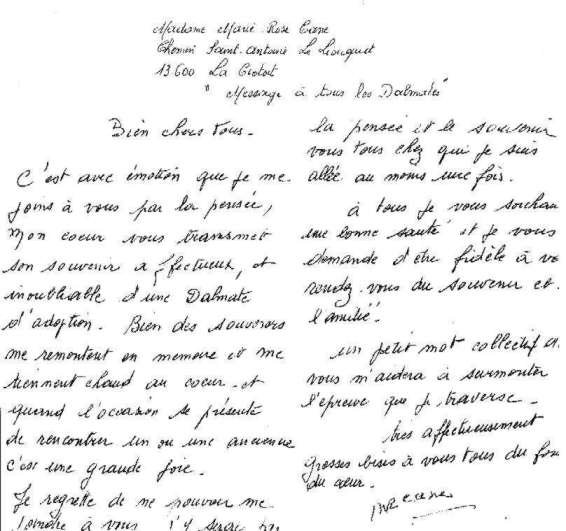 Madame Marie-Rose Cane
Chemin Saint-Antoine Le Liouquet
13600 La Ciotat
"Message à tous les Dalmates"
Bien chers tous.
C'est avec émotion que je me
joins à vous par la pensée,
Mon coeur vous transmet
son souvenir affectueux, et
inoubliable d'une Dalmate
d'adoption. Bien des souvenirs
me remontent en memoire et me
tiennent chaud au coeur. et
quand l'occasion se présente
de rencontrer un ou une ancienne
c'est une grande joie.
Je regrette de ne pouvoir me
joindre à vous
la pensée et le souvenir
vous tous chez qui je suis
allée au moins une fois.
à tous je vous souhai
une bonne santé et je vous
demande d'être fidèle à vo
rendez-vous du souvenir et
l'amitié.
un petit mot collectif
vous m'aidera à surmonter
l'épreuve que je traverse.
très affectueusement
grosses bises à vous tous du fon
du coeur.